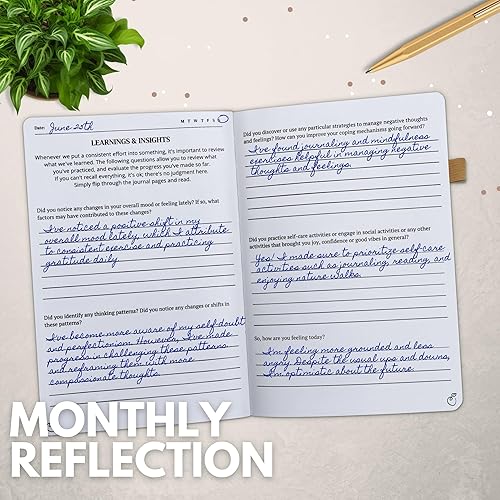 Date: June 25th
M T W T F S S
LEARNINGS & INSIGHTS
Whenever we put a consistent effort into something, it's important to review
what we've learned. The following questions allow you to review what
you've practiced, and evaluate the progress you've made so far.
If you can't recall everything, it's ok; there's no judgment here.
Simply flip through the journal pages and read.
Did you notice any changes in your overall mood or feeling lately? If so, what
factors may have contributed to these changes?
I've noticed a positive shift in my
overall mood lately, which I attribute
to consistent exercise and practicing
gratitude daily.
Did you identify any thinking patterns? Did you notice any changes or shifts in
these patterns?
I've become more aware of my self-doubt
and perfectionism. However, I've made
progress in challenging these patterns
and reframing them with more
compassionate thoughts.
Did you discover or use any particular strategies to manage negative thoughts
and feelings? How can you improve your coping mechanisms going forward?
I've found journaling and mindfulness
exercises helpful in managing negative
thoughts and feelings.
Did you practice self-care activities or engage in social activities or any other
activities that brought you joy, confidence or good vibes in general?
Yes! I made sure to prioritize self-care
activities such as journaling, reading, and
enjoying nature walks.
So, how are you feeling today?
I'm feeling more grounded and less
angry. Despite the usual ups and downs,
I'm optimistic about the future.
MONTHLY
REFLECTION